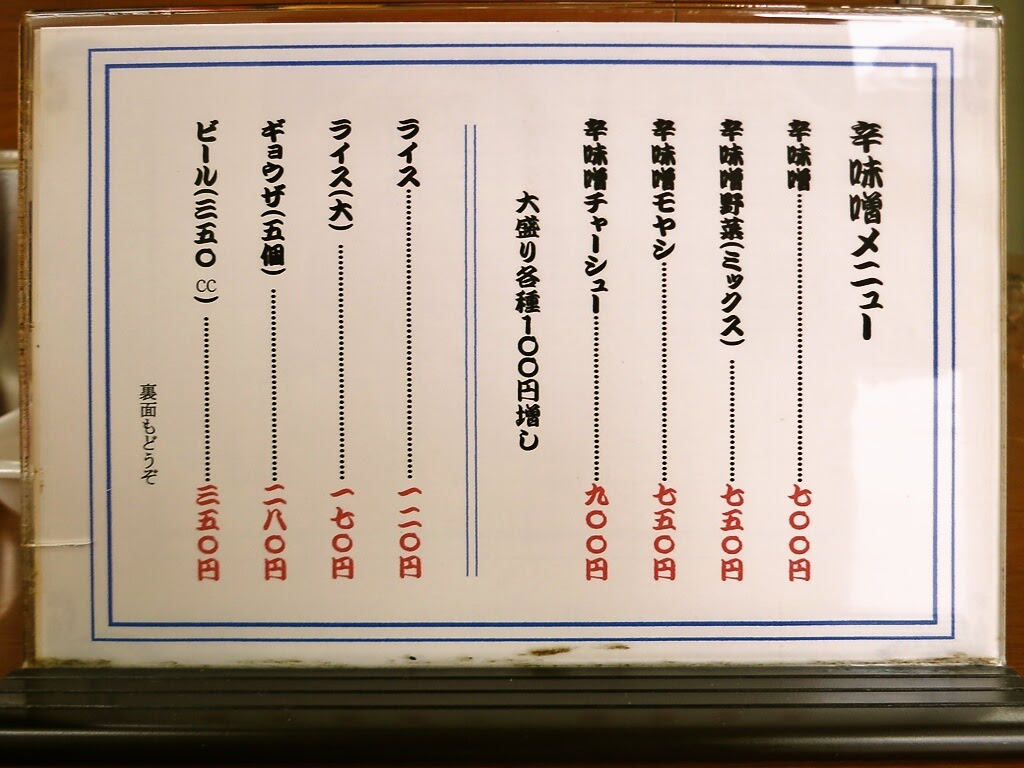 辛味噌メニュー
辛味噌………七〇〇円
辛味噌野菜(ミックス)………七五〇円
辛味噌モヤシ………七五〇円
辛味噌チャーシュー………九〇〇円
大盛り各種１００円増し
ライス………一二〇円
ライス(大)………一七〇円
ギョウザ(五個)………二八〇円
ビール(三五〇cc)………三五〇円
裏面もどうぞ